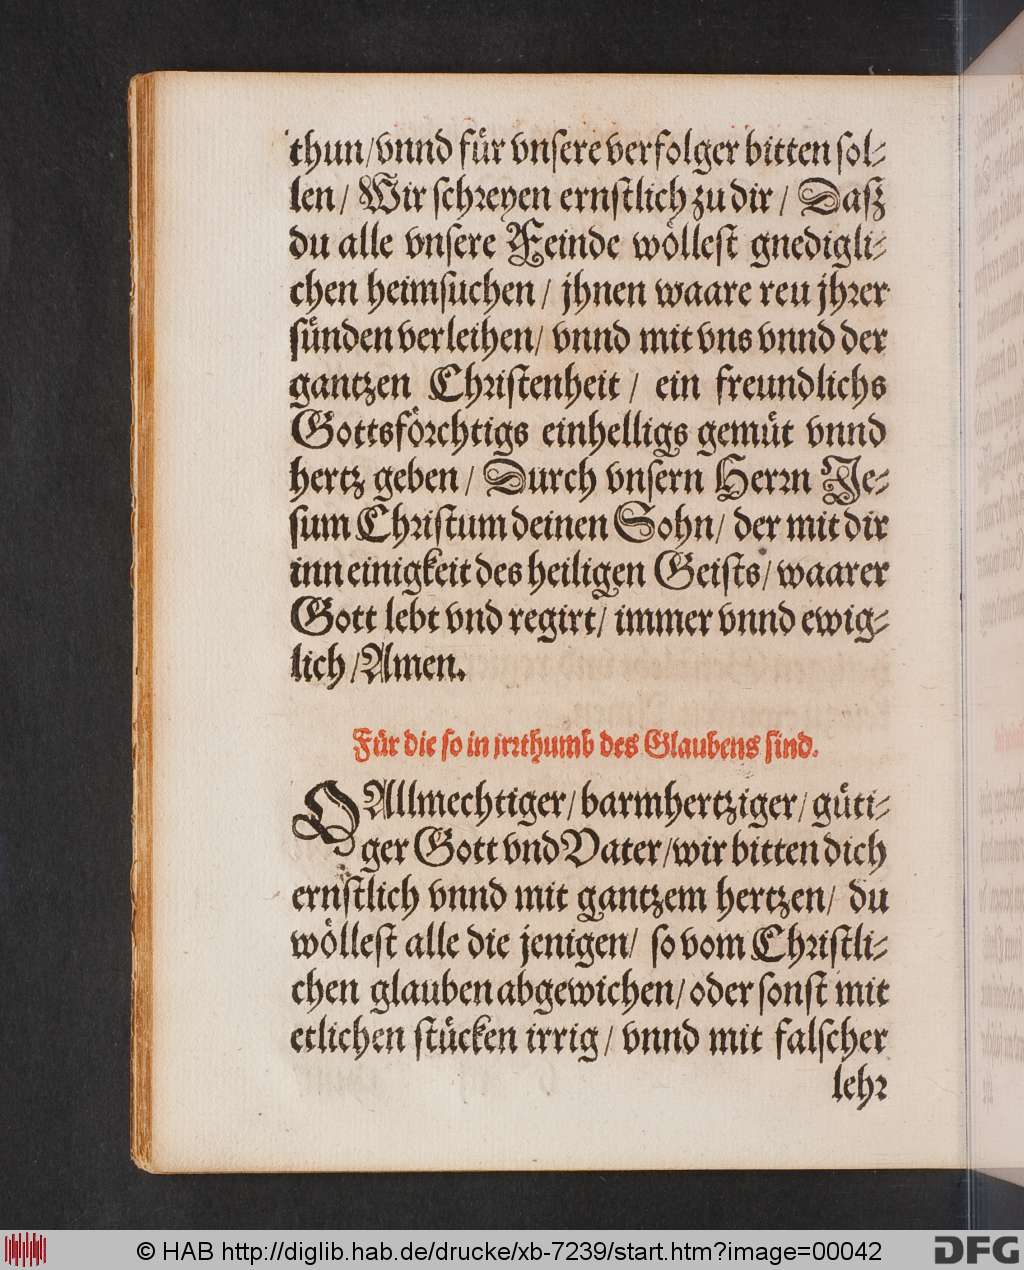 thun/vnnd für vnsere verfolger bitten sol⸗
len/ Wir schreyen ernstlich zu dir/ Daß
du alle vnsere Feinde wöllest gnedigli⸗
chen heimsuchen/ jhnen waare reu jhrer
sünden verleihen/ vnnd mit vns vnnd der
gantzen Christenheit/ ein freundlichs
Gottsförchtigs einhelligs gemüt vnnd
hertz geben/ Durch vnsern Herrn Je⸗
sum Christum deinen Sohn/ der mit dir
inn einigkeit des heiligen Geists/ waarer
Gott lebt vnd regirt/ immer vnnd ewig⸗
lich/Amen.
Für die so in jrrthumb des Glaubens sind.
O Allmechtiger/ barmhertziger/ güti⸗
ger Gott vnd Vater/wir bitten dich
ernstlich vnnd mit gantzem hertzen/ du
wöllest alle die jenigen/ so vom Christli⸗
chen glauben abgewichen/ oder sonst mit
etlichen stücken irrig/ vnnd mit falscher
lehr
© HAB http://diglib.hab.de/drucke/xb-7239/start.htm?image=00042
DFG